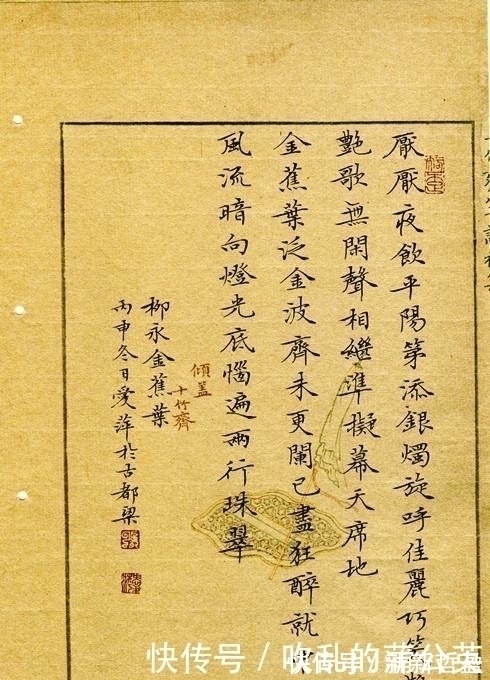 厭厭夜飲平陽第添銀燭旋呼佳麗巧笑難
艷歌無閑聲相繼準擬幕天席地
金蕉葉泛金波齊未更闌已盡狂醉就中
風流暗向燈光底惱遍兩行珠翠
傾蓋
十竹齋
柳永金蕉葉
丙申冬日愛萍於古都梁
快传号 / 吹乱的蒲公英
快传号